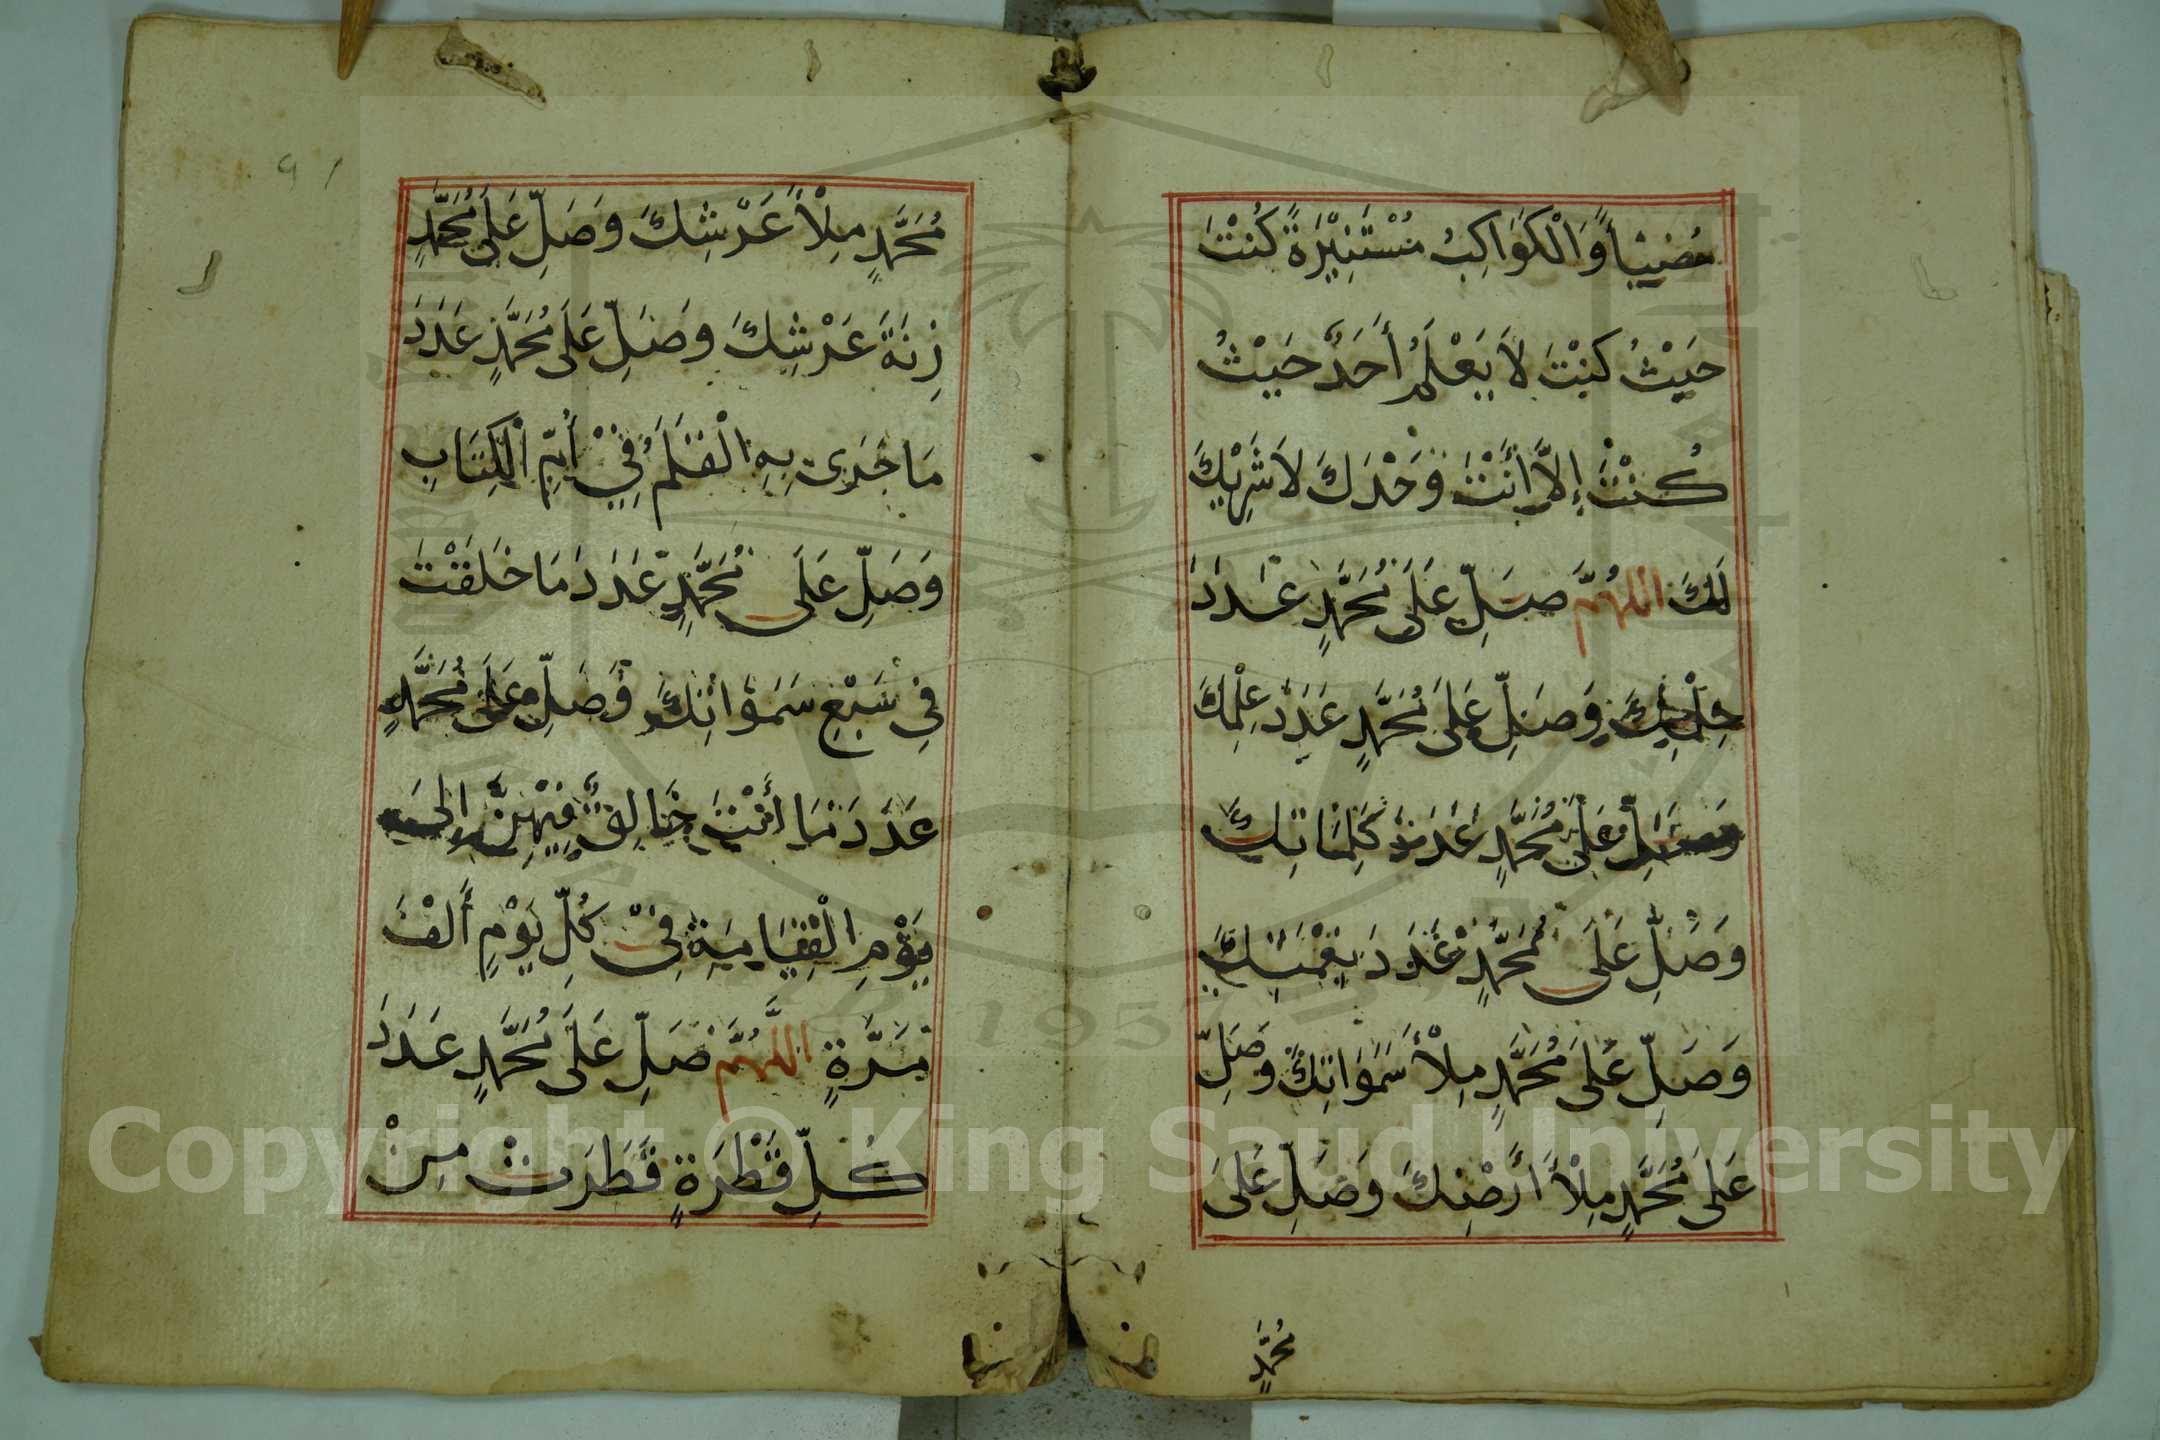 مُضِيْأً وَالْكَوَاكِبُ مُسْتَنِيْرَةً كُنْتَ
حَيْثُ كُنْتَ لَا يَعْلَمُ أَحَدٌ حَيْثُ
كُنْتَ إِلَّا أَنْتَ وَحْدَكَ لَا شَرِيْكَ
لَكَ اللهُمَّ صَلِّ عَلَى مُحَمَّدٍ عَدَدَ
حِلْمِكَ وَصَلِّ عَلَى مُحَمَّدٍ عَدَدَ عِلْمِكَ
وَصَلِّ عَلَى مُحَمَّدٍ عَدَدَ كَلِمَاتِكَ
وَصَلِّ عَلَى مُحَمَّدٍ عَدَدَ نِعْمَتِكَ
وَصَلِّ عَلَى مُحَمَّدٍ مِلْأَ سَمَوَاتِكَ وَصَلِّ
عَلَى مُحَمَّدٍ مِلْأَ أَرْضِكَ وَصَلِّ عَلَى
مُحَمَّدٍ
مُحَمَّدٍ مِلْأَ عَرْشِكَ وَصَلِّ عَلَى مُحَمَّدٍ
زِنَةَ عَرْشِكَ وَصَلِّ عَلَى مُحَمَّدٍ عَدَدَ
مَا جَرَى بِهِ الْقَلَمُ فِيْ أُمِّ الْكِتَابِ
وَصَلِّ عَلَى مُحَمَّدٍ عَدَدَ مَا خَلَقْتَ
فِي سَبْعِ سَمَوَاتِكَ وَصَلِّ عَلَى مُحَمَّدٍ
عَدَدَ مَا أَنْتَ خَالِقٌ فِيْهِنَّ إِلَى
يَوْمِ الْقِيَامَةِ فِيْ كُلِّ يَوْمٍ أَلْفَ
مَرَّةٍ اللَّهُمَّ صَلِّ عَلَى مُحَمَّدٍ عَدَدَ
كُلِّ قَطْرَةٍ قَطَرَتْ مِنْ
Copyright © King Saud University
1957